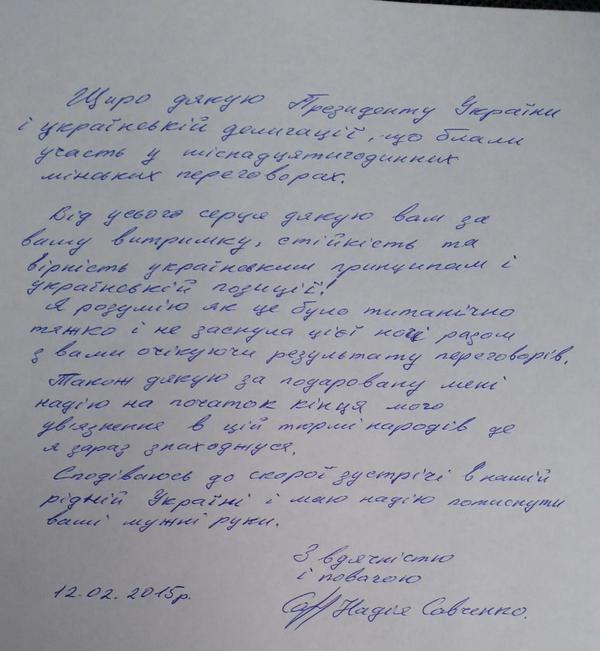 Щиро дякую Президенту України
і українській делигації, що блали
участь у шіснадцятигодинних
мінських переговорах.
Від усього серця дякую вам за
вашу витримку, стійкість та
вірність українським принципам і
українській позиції!
Я розумію як це було титанічно
тяжко і не заснула цієї ночі разом
з вами очікуючи результату переговорів.
Також дякую за подаровану мені
надію на початок кінця мого
ув'язнення в цій тюрмі народів де
я зараз знаходжуся.
Сподіваюсь до скорої зустрічі в нашій
рідній Україні і маю надію потиснути
ваші мужні руки.
З вдячністю
і повагою
12.02.2015р.
Надія Савченко.